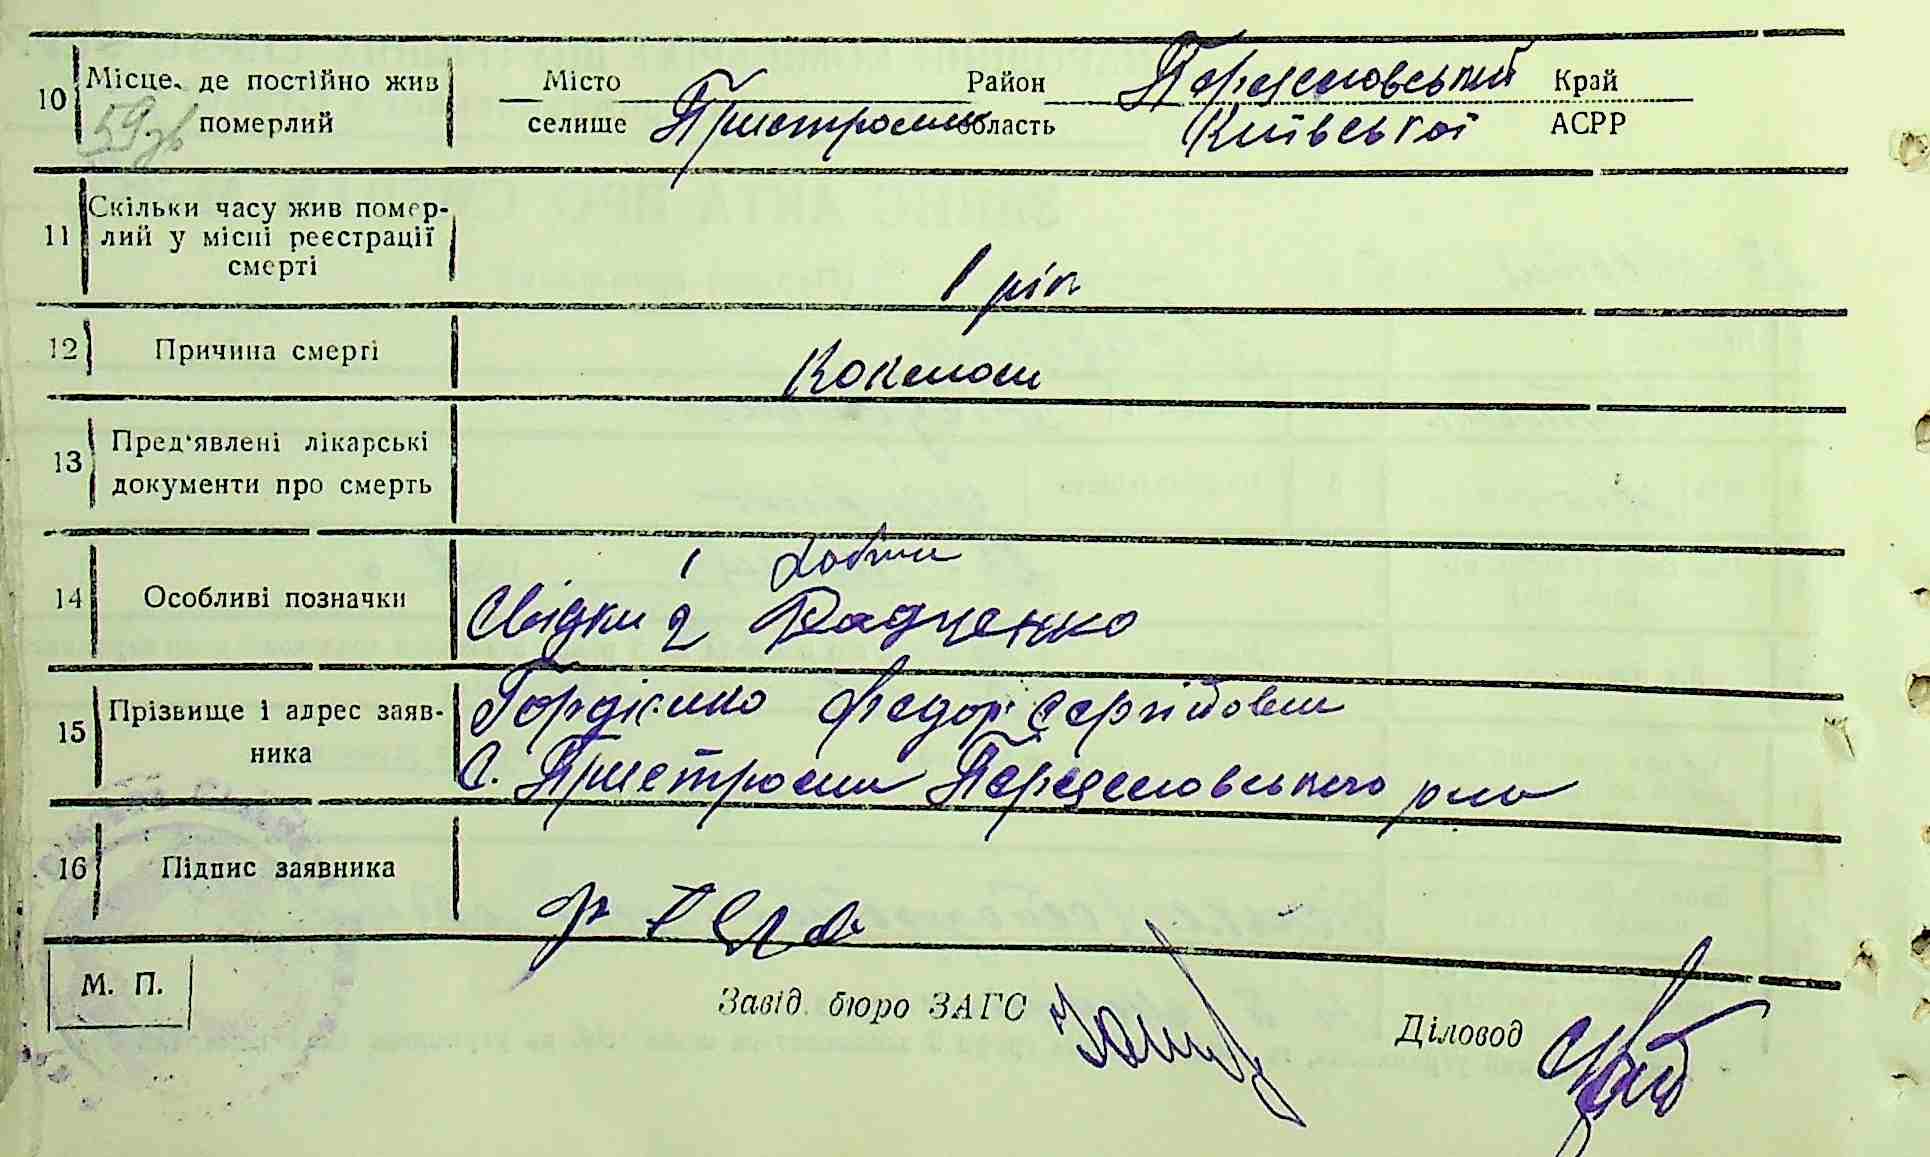 10 Місце, де постійно жив Місто Район Переяславський Край
59 померлий селище Пристроми область Київської АСРР
11 Скільки часу жив помер-
лий у місці реєстрації
смерті
1 рік
12 Причина смерті Коклюш
13 Пред'явлені лікарські
документи про смерть
1
14 Особливі позначки Свідки 2 Радченко
15 Прізвище і адрес заяв- Гордієнко Федор Сергійович
ника с. Пристроми Переяславського р-ну
16 Підпис заявника
М. П.
Завід. бюро ЗАГС
Діловод